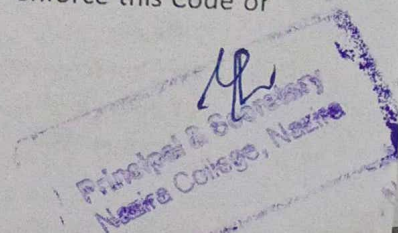 enforce this Code or
Principal & Secretary
Nazira College, Nazira